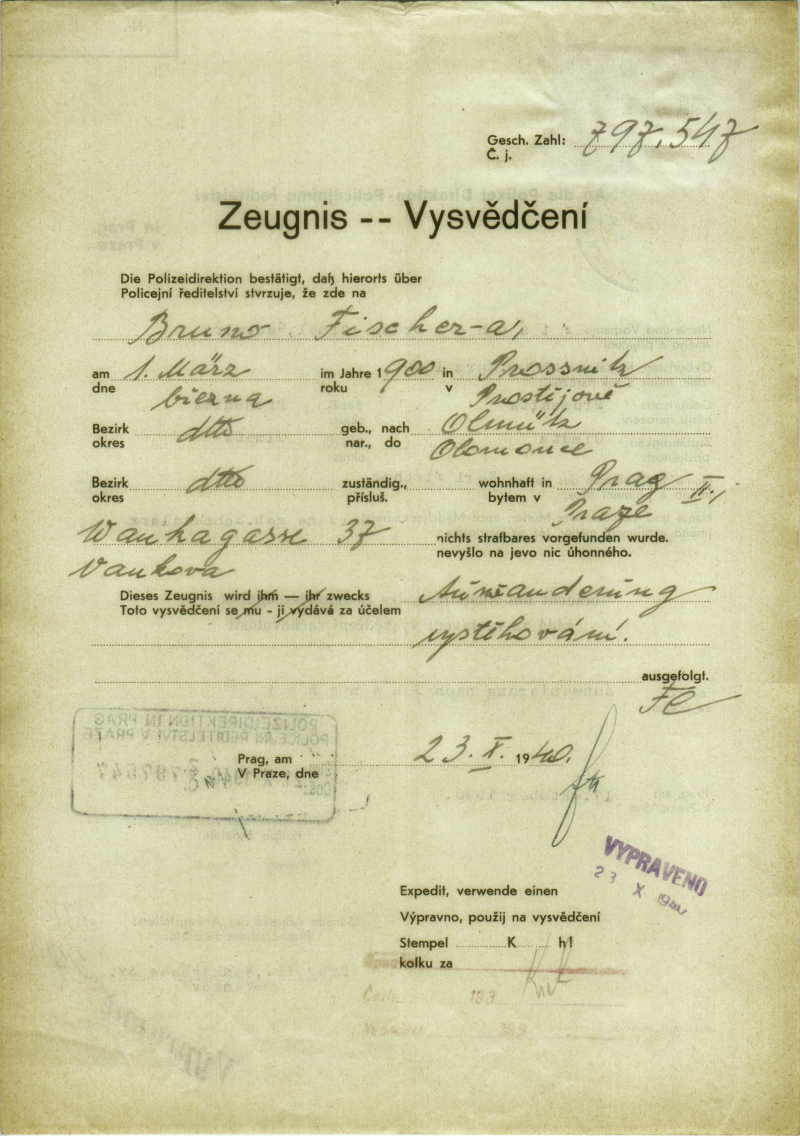 Gesch. Zahl: 797.547
Č. j.
Zeugnis -- Vysvědčení
Die Polizeidirektion bestätigt, daß hierorts über
Policejní ředitelství stvrzuje, že zde na
Bruno Fischer-a,
am 1. März im Jahre 1900 in Prossnitz
dne března roku v Prostějově
Bezirk dtto geb., nach Olmütz
okres nar., do Olomouce
Bezirk dtto zuständig., wohnhaft in Prag II.,
okres přísluš. bytem v Praze
Wankagasse 37 nichts strafbares vorgefunden wurde.
Vaňkova nevyšlo na jevo nic úhonného.
Dieses Zeugnis wird ihm — ihr zwecks Auswanderung
Toto vysvědčení se mu - ji vydává za účelem
vystěhování.
ausgefolgt.
POLIZEIDIREKTION IN PRAG
POLICEJNÍ ŘEDITELSTVÍ V PRAZE
797547
Prag, am 23. X. 1940.
V Praze, dne
VYPRAVENO
23 X 1940
Expedit, verwende einen
Výpravno, použij na vysvědčení
Stempel K h/l
kolku za